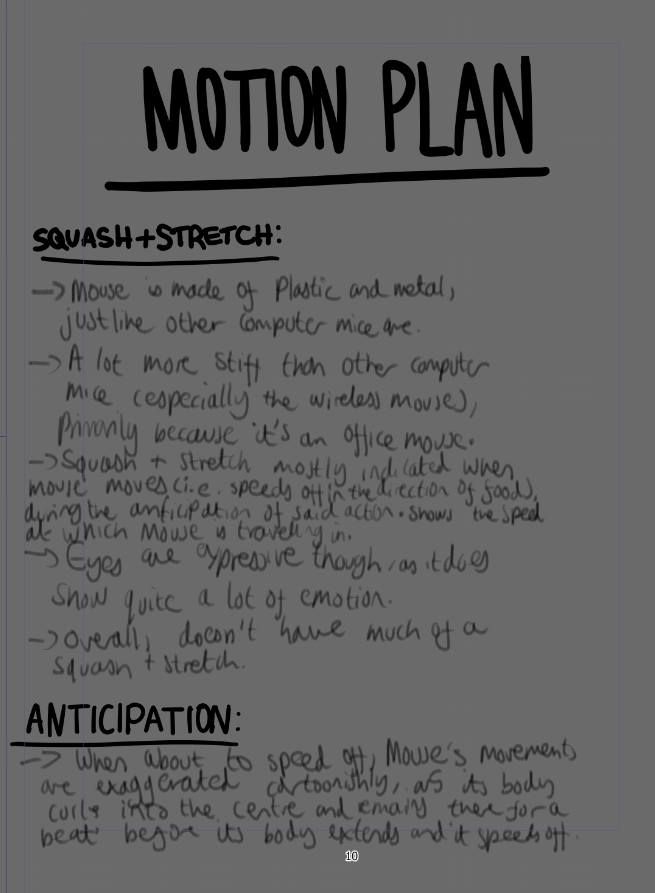 MOTION PLAN
SQUASH+STRETCH:
-> Mouse is made of Plastic and metal,
just like other computer mice are.
-> A lot more stiff than other computer
mice (especially the wireless mouse),
Primarily because it's an office mouse.
-> Squash + stretch mostly indicated when
mouse moves (i.e. speeds off in the direction of food),
during the anticipation of said action. Shows the speed
at which Mouse is traveling in.
-> Eyes are expressive though, as it does
show quite a lot of emotion.
-> Overall, doesn't have much of a
squash + stretch.
ANTICIPATION:
-> When about to speed off, Mouse's movements
are exaggerated cartoonishly, as its body
curls into the centre and remains there for a
beat before its body extends and it speeds off.
10